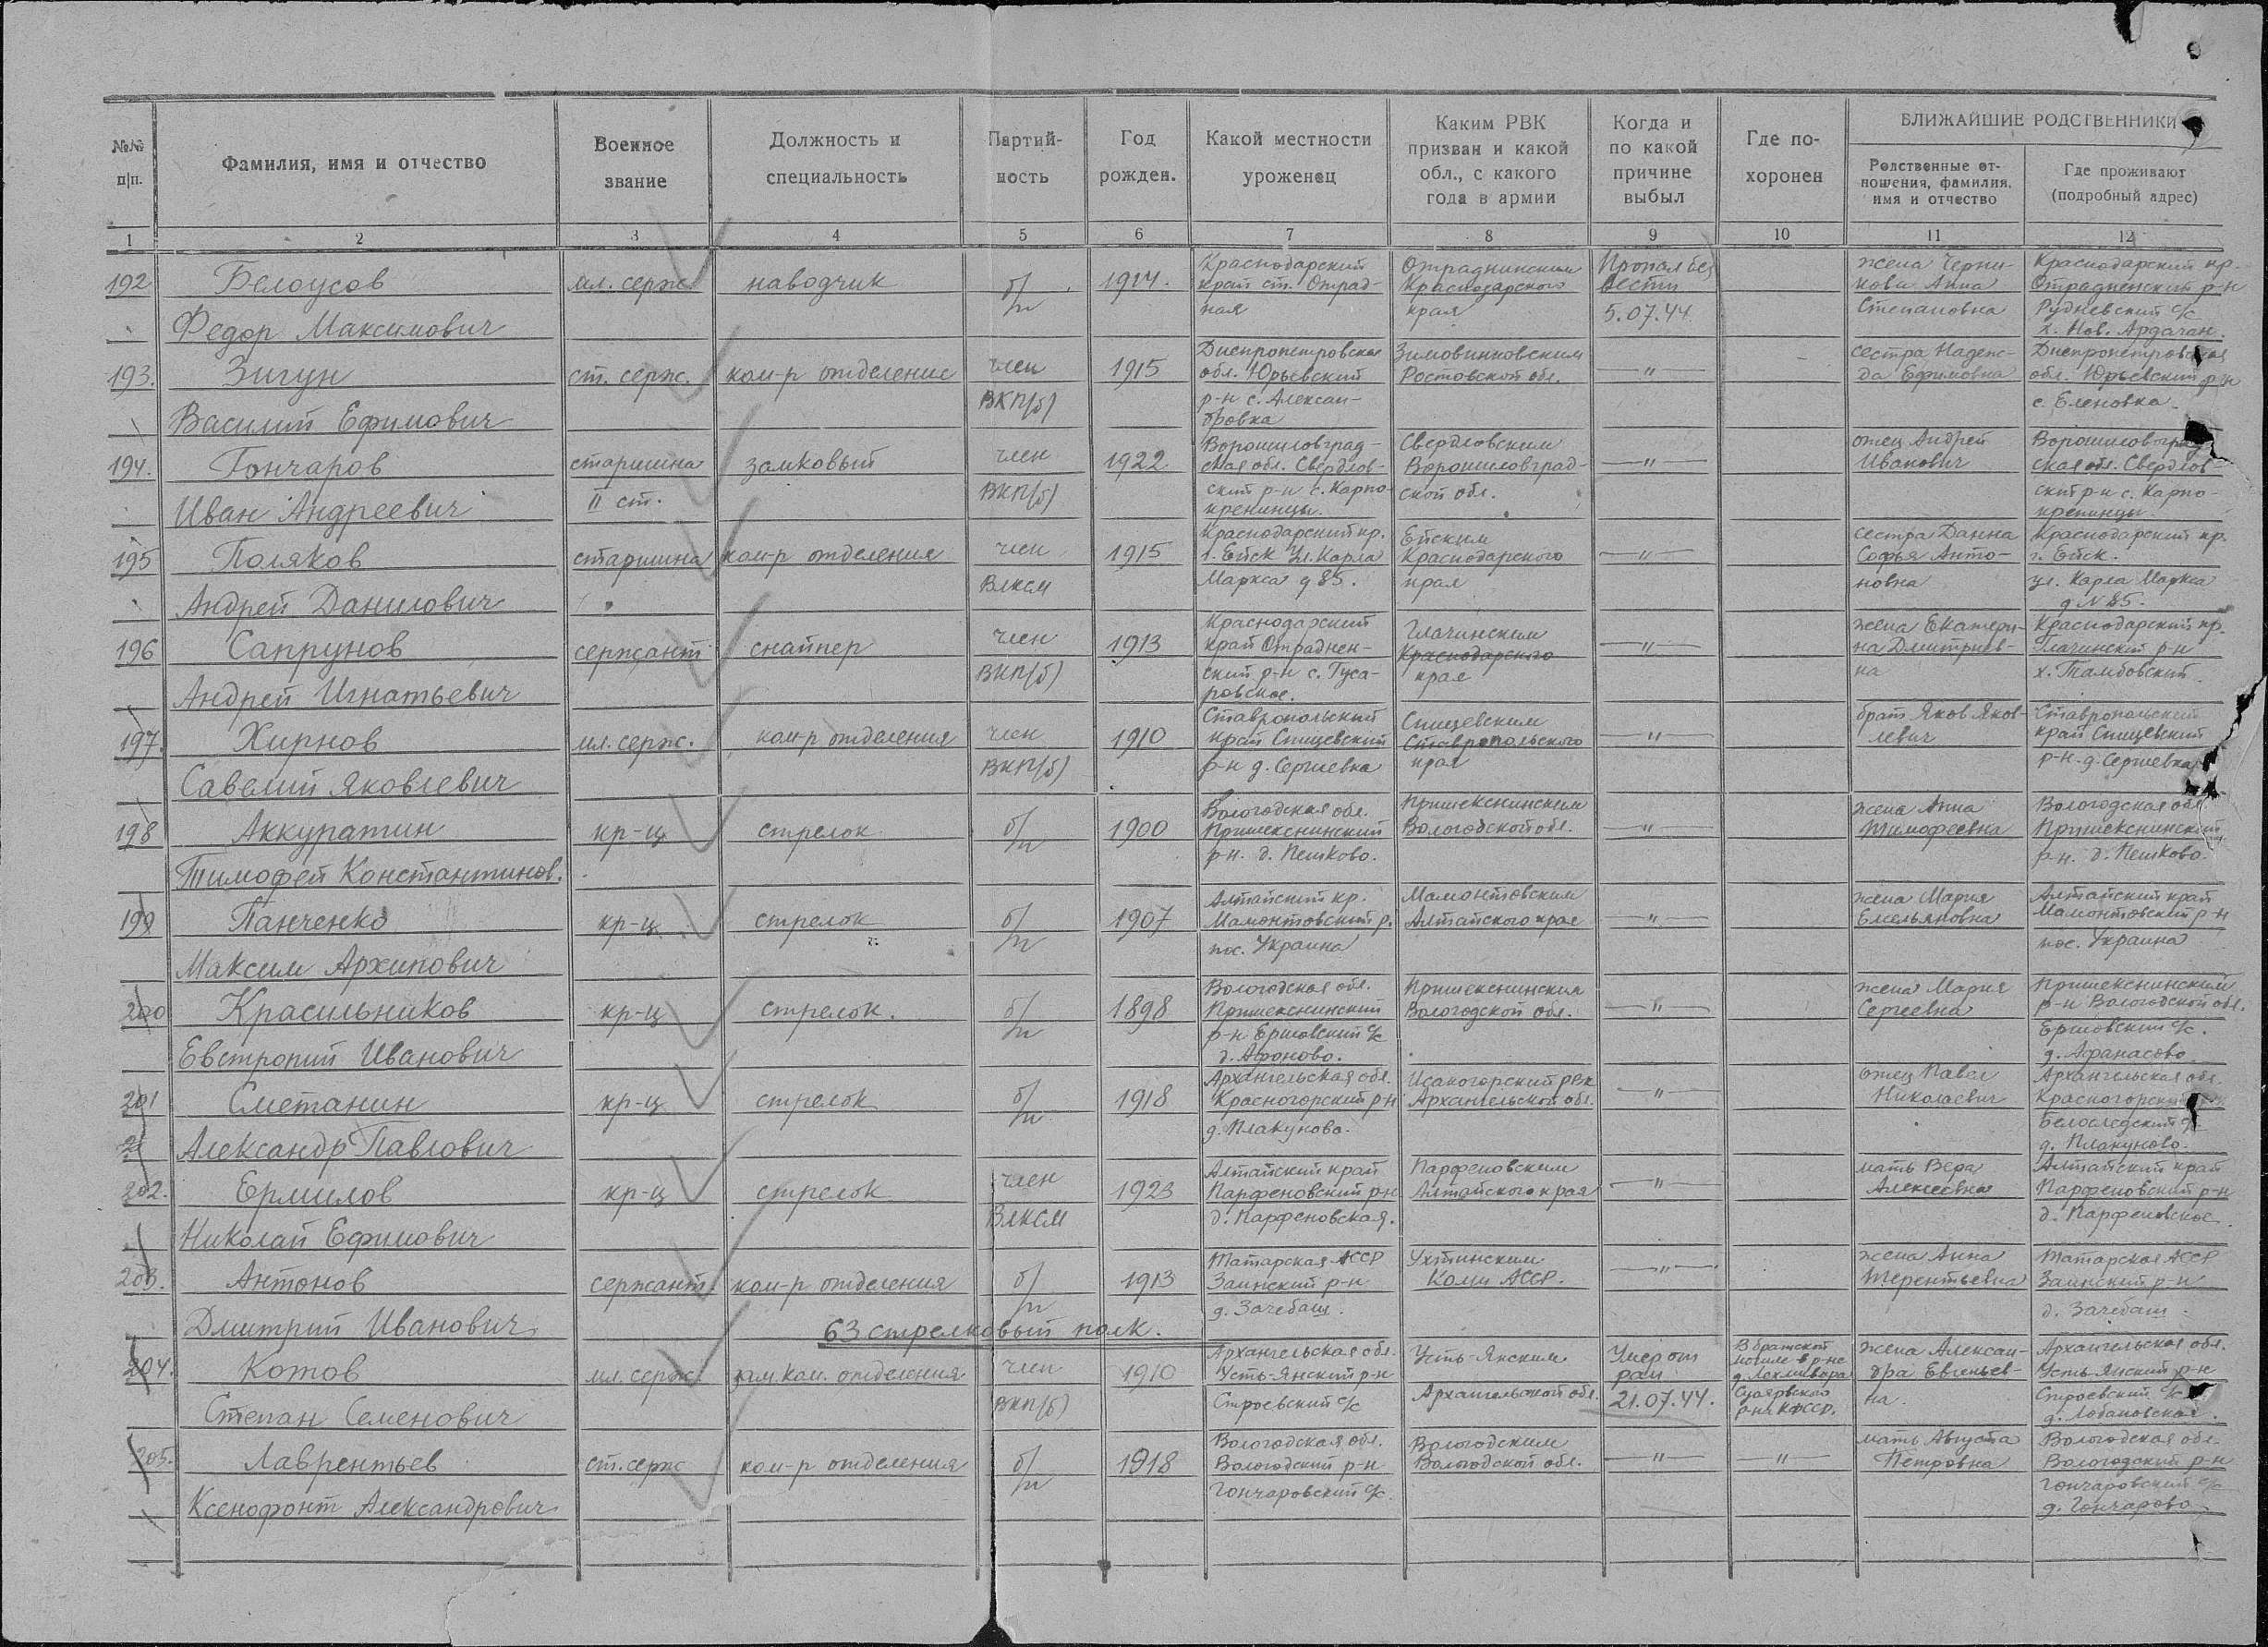 №№ п/п.
Фамилия, имя и отчество
Военное звание
Должность и специальность
Партийность
Год рожден.
Какой местности уроженец
Каким РВК призван и какой обл., с какого года в армии
Когда и по какой причине выбыл
Где похоронен
БЛИЖАЙШИЕ РОДСТВЕННИКИ
Родственные отношения, фамилия, имя и отчество
Где проживают (подробный адрес)
1 2 3 4 5 6 7 8 9 10 11 12
192 Белоусов мл. серж. наводчик б/п 1914. Краснодарский край ст. Отрадная Отраднинским Краснодарского края Пропал без вести 5.07.44 жена Черникова Анна Степановна Краснодарский кр. Отрадненский р-н Рудневский с/с х. Нов. Ардаган.
Федор Максимович
193. Зигун ст. серж. ком-р отделение член ВКП(б) 1915 Днепропетровская обл. Юрьевский р-н с. Александровка Зимовниковским Ростовской обл. —"— сестра Надежда Ефимовна Днепропетровская обл. Юрьевский р-н с. Еленовка.
Василий Ефимович
194. Гончаров старшина II ст. замковый член ВКП(б) 1922 Ворошиловградская обл. Свердловский р-н с. Карпокрепинцы. Свердловским Ворошиловградской обл. —"— отец Андрей Иванович Ворошиловградская обл. Свердловский р-н с. Карпокрепинцы.
Иван Андреевич
195 Поляков старшина ком-р отделения член ВЛКСМ 1915 Краснодарский кр. г. Ейск ул. Карла Маркса д 85. Ейским Краснодарского края —"— сестра Дарина Софья Антоновна Краснодарский кр. г. Ейск. ул. Карла Маркса д № 85.
Андрей Данилович
196 Сапрунов сержант снайпер член ВКП(б) 1913 Краснодарский край Отрадненский р-н с. Гусаровское. Гиагинским Краснодарского края —"— жена Екатерина Дмитриевна Краснодарский кр. Гиагинский р-н х. Тамбовский.
Андрей Игнатьевич
197. Хирнов мл. серж. ком-р отделения член ВКП(б) 1910 Ставропольский край Спицевский р-н д. Сергиевка Спицевским Ставропольского края —"— брат Яков Яковлевич Ставропольский край Спицевский р-н. д. Сергиевка
Савелий Яковлевич
198 Аккуратин кр-ц стрелок б/п 1900 Вологодская обл. Пришекснинский р-н. д. Пешково. Пришекснинским Вологодской обл. —"— жена Анна Тимофеевна Вологодская обл. Пришекснинский р-н. д. Пешково.
Тимофей Константинов.
199 Панченко кр-ц стрелок б/п 1907 Алтайский кр. Мамонтовский р. пос. Украина Мамонтовским Алтайского края —"— жена Мария Емельяновна Алтайский край Мамонтовский р-н пос. Украина
Максим Архипович
200 Красильников кр-ц стрелок. б/п 1898 Вологодская обл. Пришекснинский р-н Ершовский с/с д. Афоново. Пришекснинским Вологодской обл. —"— жена Мария Сергеевна Пришекснинский р-н Вологодской обл. Ершовский с/с. д. Афанасово.
Евстропий Иванович
201 Сметанин кр-ц стрелок б/п 1918 Архангельская обл. Красногорский р-н д. Плакуново. Исакогорский РВК Архангельской обл. —"— отец Павел Николаевич Архангельская обл. Красногорский Белослудский с/с. д. Плакуново.
Александр Павлович
202. Ермилов кр-ц стрелок член ВЛКСМ 1923 Алтайский край Парфеновский р-н д. Парфеновская. Парфеновским Алтайского края —"— мать Вера Алексеевна Алтайский край Парфеновский р-н д. Парфеновское.
Николай Ефимович
203. Антонов сержант ком-р отделения б/п 1913 Татарская АССР Заинский р-н д. Зачебаш. Ухтинским Коми АССР. —"— жена Анна Терентьевна Татарская АССР Заинский р-н д. Зачебаш.
Дмитрий Иванович
63 стрелковый полк.
204. Котов мл. серж. зам. ком. отделения член ВКП(б) 1910 Архангельская обл. Усть-Янский р-н Строевский с/с Усть-Янским Архангельской обл. Умер от ран 21.07.44. В братской могиле в р-не Суоярвского р-на КФССР. жена Александра Евгеньевна. Архангельская обл. Усть-Янский р-н Строевский с/с д. Лобановская.
Степан Семенович
205. Лаврентьев ст. серж ком-р отделения б/п 1918 Вологодская обл. Вологодский р-н Гончаровский с/с. Вологодским Вологодской обл. —"— —"— мать Августа Петровна Вологодская обл. Вологодский р-н Гончаровский с/с д. Гончарово.
Ксенофонт Александрович